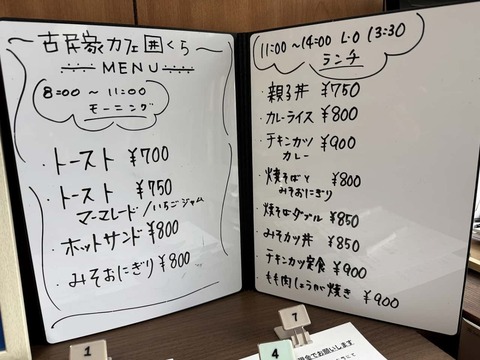 古民家カフェ 囲くら
MENU
8:00 ~ 11:00
モーニング
・トースト ¥700
・トースト ¥750
マーマレード/いちごジャム
・ホットサンド ¥800
・みそおにぎり ¥800
11:00 ~ 14:00 L・O 13:30
ランチ
・親子丼 ¥750
・カレーライス ¥800
・チキンカツ ¥900
カレー
・焼そばと ¥800
みそおにぎり
・焼そばダブル ¥850
・みそカツ丼 ¥850
・チキンカツ定食 ¥900
・もも肉しょうが焼き ¥900
1
4
7
でお願いします